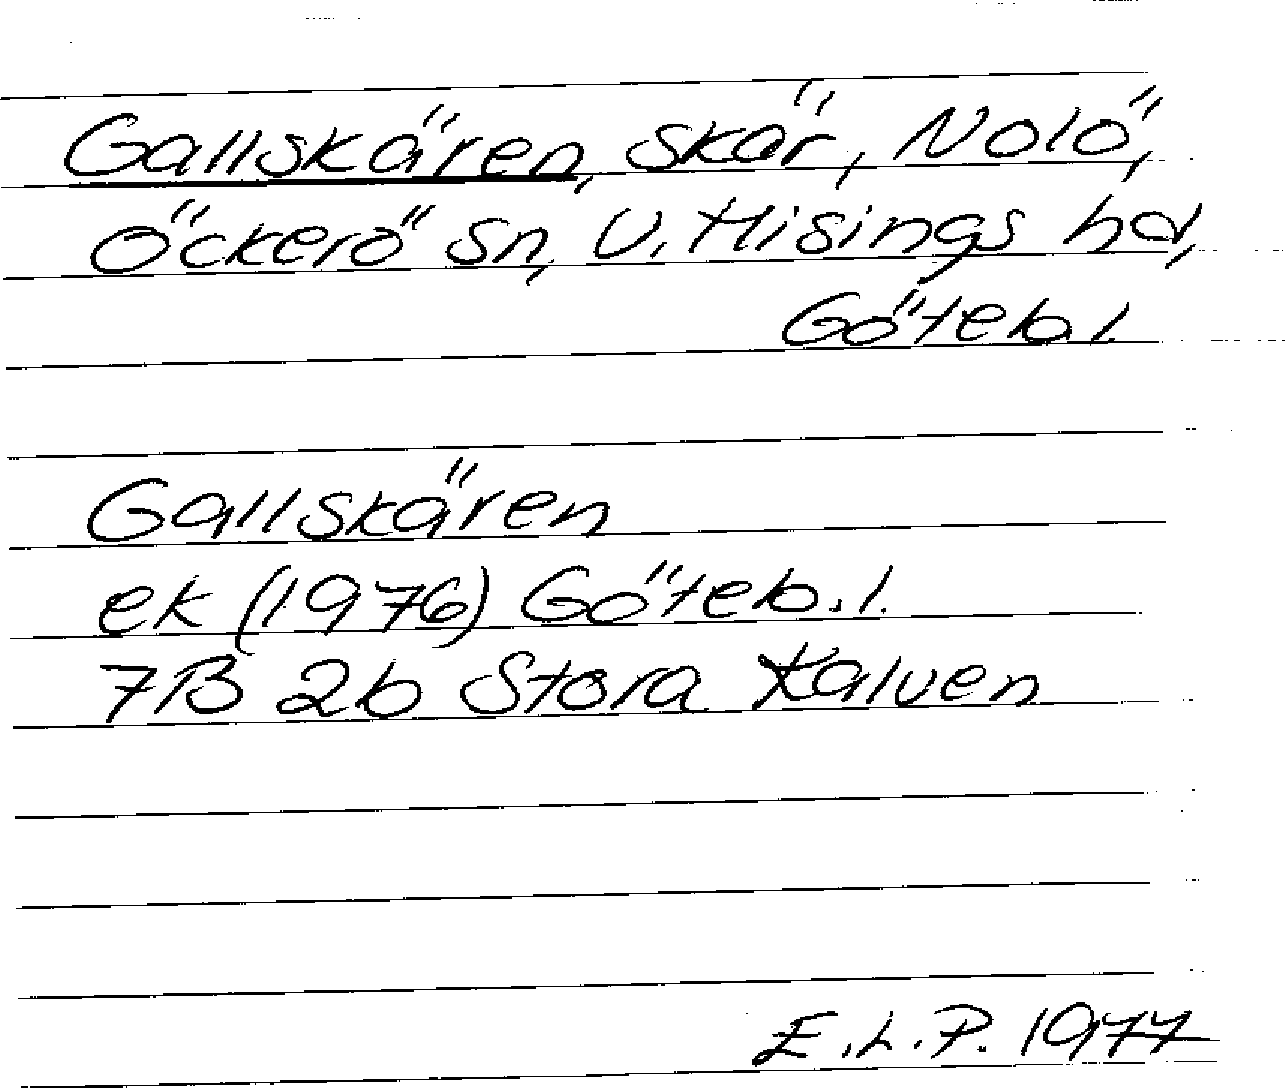 Gallskären, skär, Nolö,
Öckerö sn, V. Hisings hd,
Göteb.l.
Gallskären
ek (1976) Göteb.l.
7B 2b Stora Kalven
E.L.P. 1977